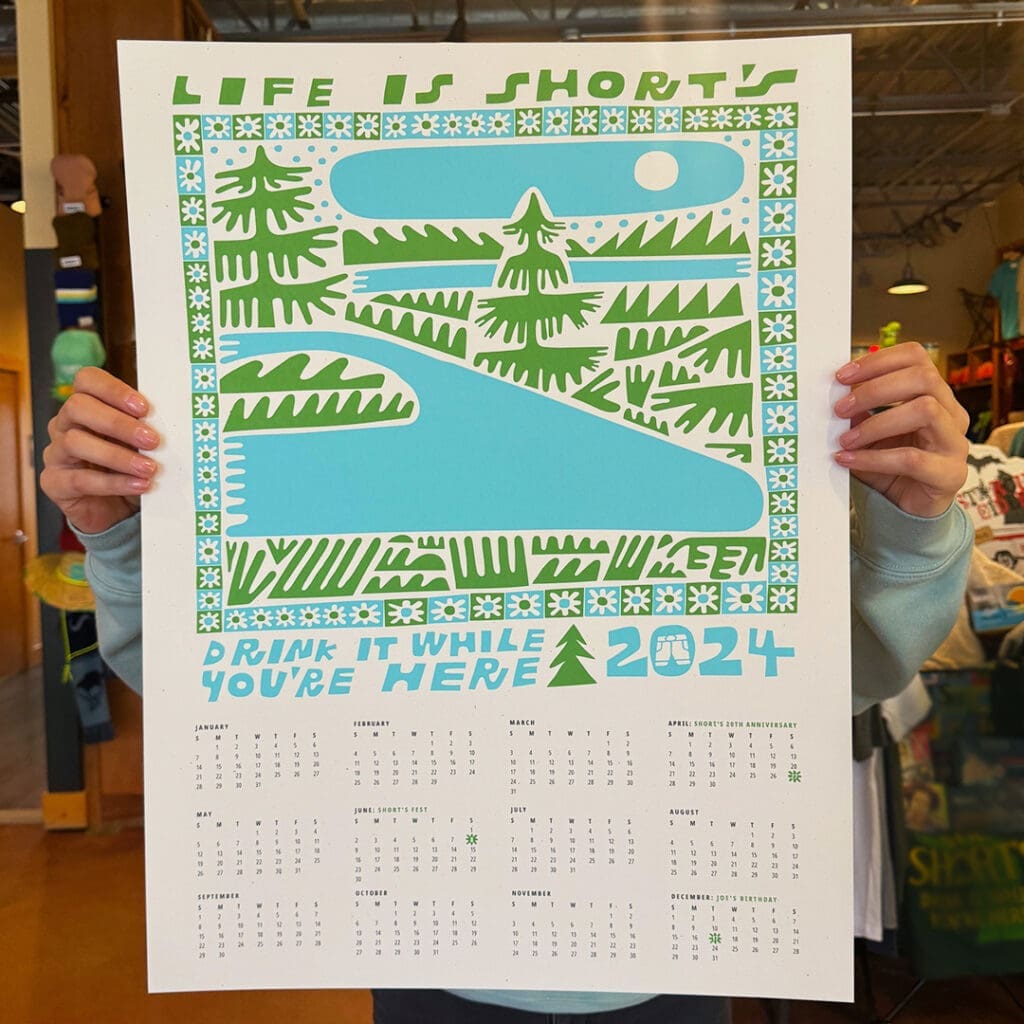 LIFE IS SHORT'S
DRINK IT WHILE
YOU'RE HERE
2024
JANUARY
S M T W T F S
1 2 3 4 5 6
7 8 9 10 11 12 13
14 15 16 17 18 19 20
21 22 23 24 25 26 27
28 29 30 31
FEBRUARY
S M T W T F S
1 2 3
4 5 6 7 8 9 10
11 12 13 14 15 16 17
18 19 20 21 22 23 24
25 26 27 28 29
MARCH
S M T W T F S
1 2
3 4 5 6 7 8 9
10 11 12 13 14 15 16
17 18 19 20 21 22 23
24 25 26 27 28 29 30
31
APRIL: SHORT'S 20TH ANNIVERSARY
S M T W T F S
1 2 3 4 5 6
7 8 9 10 11 12 13
14 15 16 17 18 19 20
21 22 23 24 25 26
28 29 30
MAY
S M T W T F S
1 2 3 4
5 6 7 8 9 10 11
12 13 14 15 16 17 18
19 20 21 22 23 24 25
26 27 28 29 30 31
JUNE: SHORT'S FEST
S M T W T F S
1
2 3 4 5 6 7
9 10 11 12 13 14 15
16 17 18 19 20 21 22
23 24 25 26 27 28 29
30
JULY
S M T W T F S
1 2 3 4 5 6
7 8 9 10 11 12 13
14 15 16 17 18 19 20
21 22 23 24 25 26 27
28 29 30 31
AUGUST
S M T W T F S
1 2 3
4 5 6 7 8 9 10
11 12 13 14 15 16 17
18 19 20 21 22 23 24
25 26 27 28 29 30 31
SEPTEMBER
S M T W T F S
1 2 3 4 5 6 7
8 9 10 11 12 13 14
15 16 17 18 19 20 21
22 23 24 25 26 27 28
29 30
OCTOBER
S M T W T F S
1 2 3 4 5
6 7 8 9 10 11 12
13 14 15 16 17 18 19
20 21 22 23 24 25 26
27 28 29 30 31
NOVEMBER
S M T W T F S
1 2
3 4 5 6 7 8 9
10 11 12 13 14 15 16
17 18 19 20 21 22 23
24 25 26 27 28 29 30
DECEMBER: JOE'S BIRTHDAY
S M T W T F S
1 2 3 4 5 6 7
8 9 10 11 12 13 14
15 16 18 19 20 21
22 23 24 25 26 27 28
29 30 31